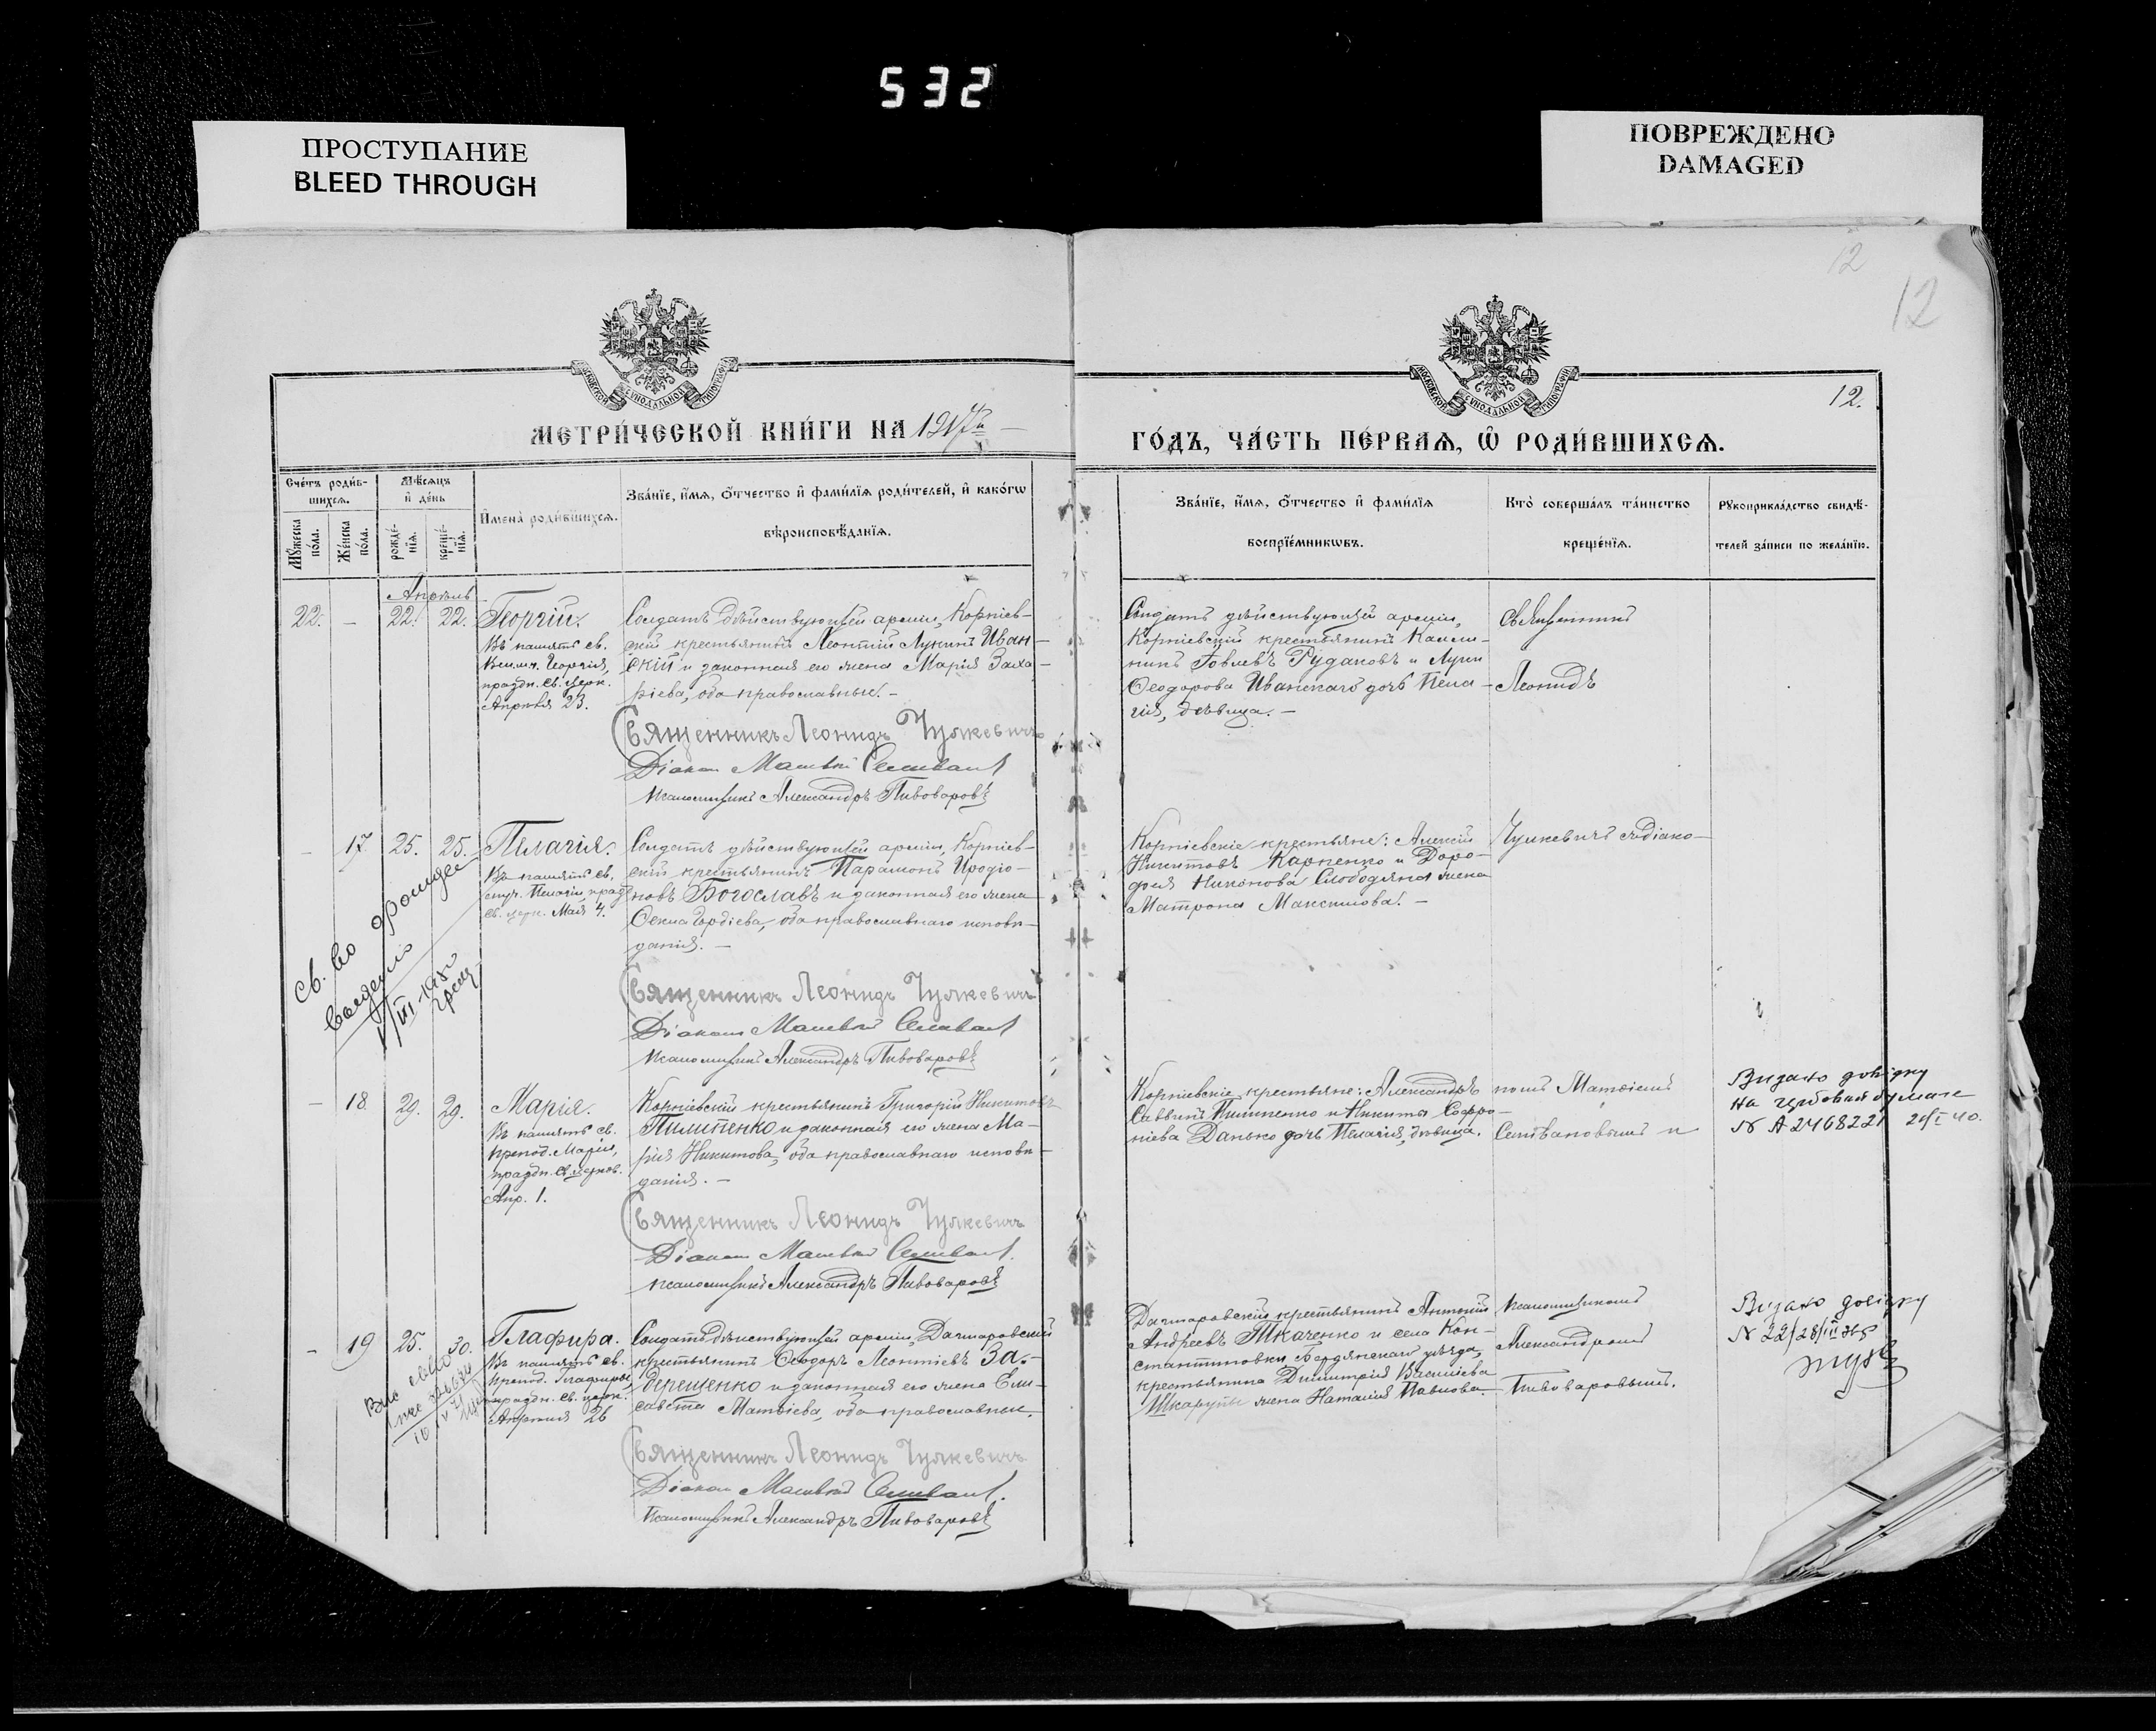 532
ПРОСТУПАНИЕ
BLEED THROUGH
ПОВРЕЖДЕНО
DAMAGED
12
12
12.
МОСКОВСКОЙ СѴНОДАЛЬНОЙ ТИПОГРАФІИ
МОСКОВСКОЙ СѴНОДАЛЬНОЙ ТИПОГРАФІИ
МЕТРИ́ЧЕСКОЙ КНИ́ГИ НА 1917й
ГО́ДЪ, ЧА́СТЬ ПЕ́РВАѦ, Ѡ҆ РОДИ́ВШИХСѦ.
Сче́тъ роди́в-
шихсѧ.
Мꙋ́жеска по́ла.
Же́нска по́ла.
Мѣ́сѧцъ
и҆ де́нь
рожде́-
нїѧ.
креще́-
нїѧ.
И҆мена̀ роди́вшихсѧ.
Зва́нїе, и҆́мѧ, ѻ҆́тчество и҆ фами́лїѧ роди́телей, и҆ како́гѡ
вѣроисповѣ́данїѧ.
Зва́нїе, и҆́мѧ, ѻ҆́тчество и҆ фами́лїѧ
воспрїе́мникѡвъ.
Кто̀ соверша́лъ та́инство
креще́нїѧ.
Рꙋкоприкла́дство свидѣ́-
телей за́писи по жела́нїю.
Апрѣль
22. – 22. 22. Георгій.
Въ память св.
Великм. Георгія,
праздн. св. Церк.
Апрѣля 23.
Солдатъ дѣйствующей арміи, Корніев-
скій крестьянинъ Леонтій Лукинъ Иван-
скій и законная его жена Марія Заха-
ріева, оба православные. –
Священникъ Леонидъ Чулкевичъ
Діаконъ Матѳій Селиванъ
Псаломщикъ Александръ Пивоваровъ
Солдатъ дѣйствующей арміи,
Корніевскій крестьянинъ Калли-
никъ Іовлевъ Рудаковъ и Луки
Ѳеодорова Иванскаго дочь Пела-
гія, дѣвица. –
Священникъ
Леонидъ
– 17 25. 25. Пелагія.
Въ память св.
муч. Пелагіи, празд.
св. церк. Мая 4.
Солдатъ дѣйствующей арміи, Корніев-
скій крестьянинъ Парамонъ Иродіо-
новъ Богославъ и законная его жена
Ѳекла Гордіева, оба православнаго исповѣ-
данія. –
Священникъ Леонидъ Чулкевичъ
Діаконъ Матѳій Селиванъ
Псаломщикъ Александръ Пивоваровъ
Корніевскіе крестьяне: Алексій
Никитовъ Карпенко и Доро-
фея Никонова Слободяна жена
Матрона Максимова. –
Чулкевичъ съ діако-
Св. во
– 18 29. 29. Марія.
Въ память св.
препод. Маріи,
праздн. св. церков.
Апр. 1.
Корніевскій крестьянинъ Григорій Никитовъ
Пилипенко и законная его жена Ма-
рія Никитова, оба православнаго исповѣ-
данія. –
Священникъ Леонидъ Чулкевичъ
Діаконъ Матѳій Селиванъ.
Псаломщикъ Александръ Пивоваровъ
Корніевскіе крестьяне: Александръ
Саввинъ Пилипенко и Никиты Софро-
ніева Данько дочь Пелагія, дѣвица.
номъ Матѳіемъ
Селивановымъ и
Видано довідку
на гербовой бумаге
№ А 2468221 20/I 40.
– 19 25. 30. Глафира.
Въ память св.
препод. Глафиры,
праздн. св. церк.
Апрѣля 26
Солдатъ дѣйствующей арміи, Дахтаровскій
крестьянинъ Ѳеодоръ Леонтіевъ За-
верещенко и законная его жена Ели-
савета Матѳіева, оба православные.
Священникъ Леонидъ Чулкевичъ
Діаконъ Матѳій Селиванъ.
Псаломщикъ Александръ Пивоваровъ
Дахтаровскій крестьянинъ Антоній
Андреевъ Ткаченко и села Кон-
стантиновки Бердянскаго уѣзда,
крестьянина Димитрія Василіева
Шкарупы жена Наталія Павлова
Псаломщикомъ
Александромъ
Пивоваровымъ.
Видано довідку
№ 22